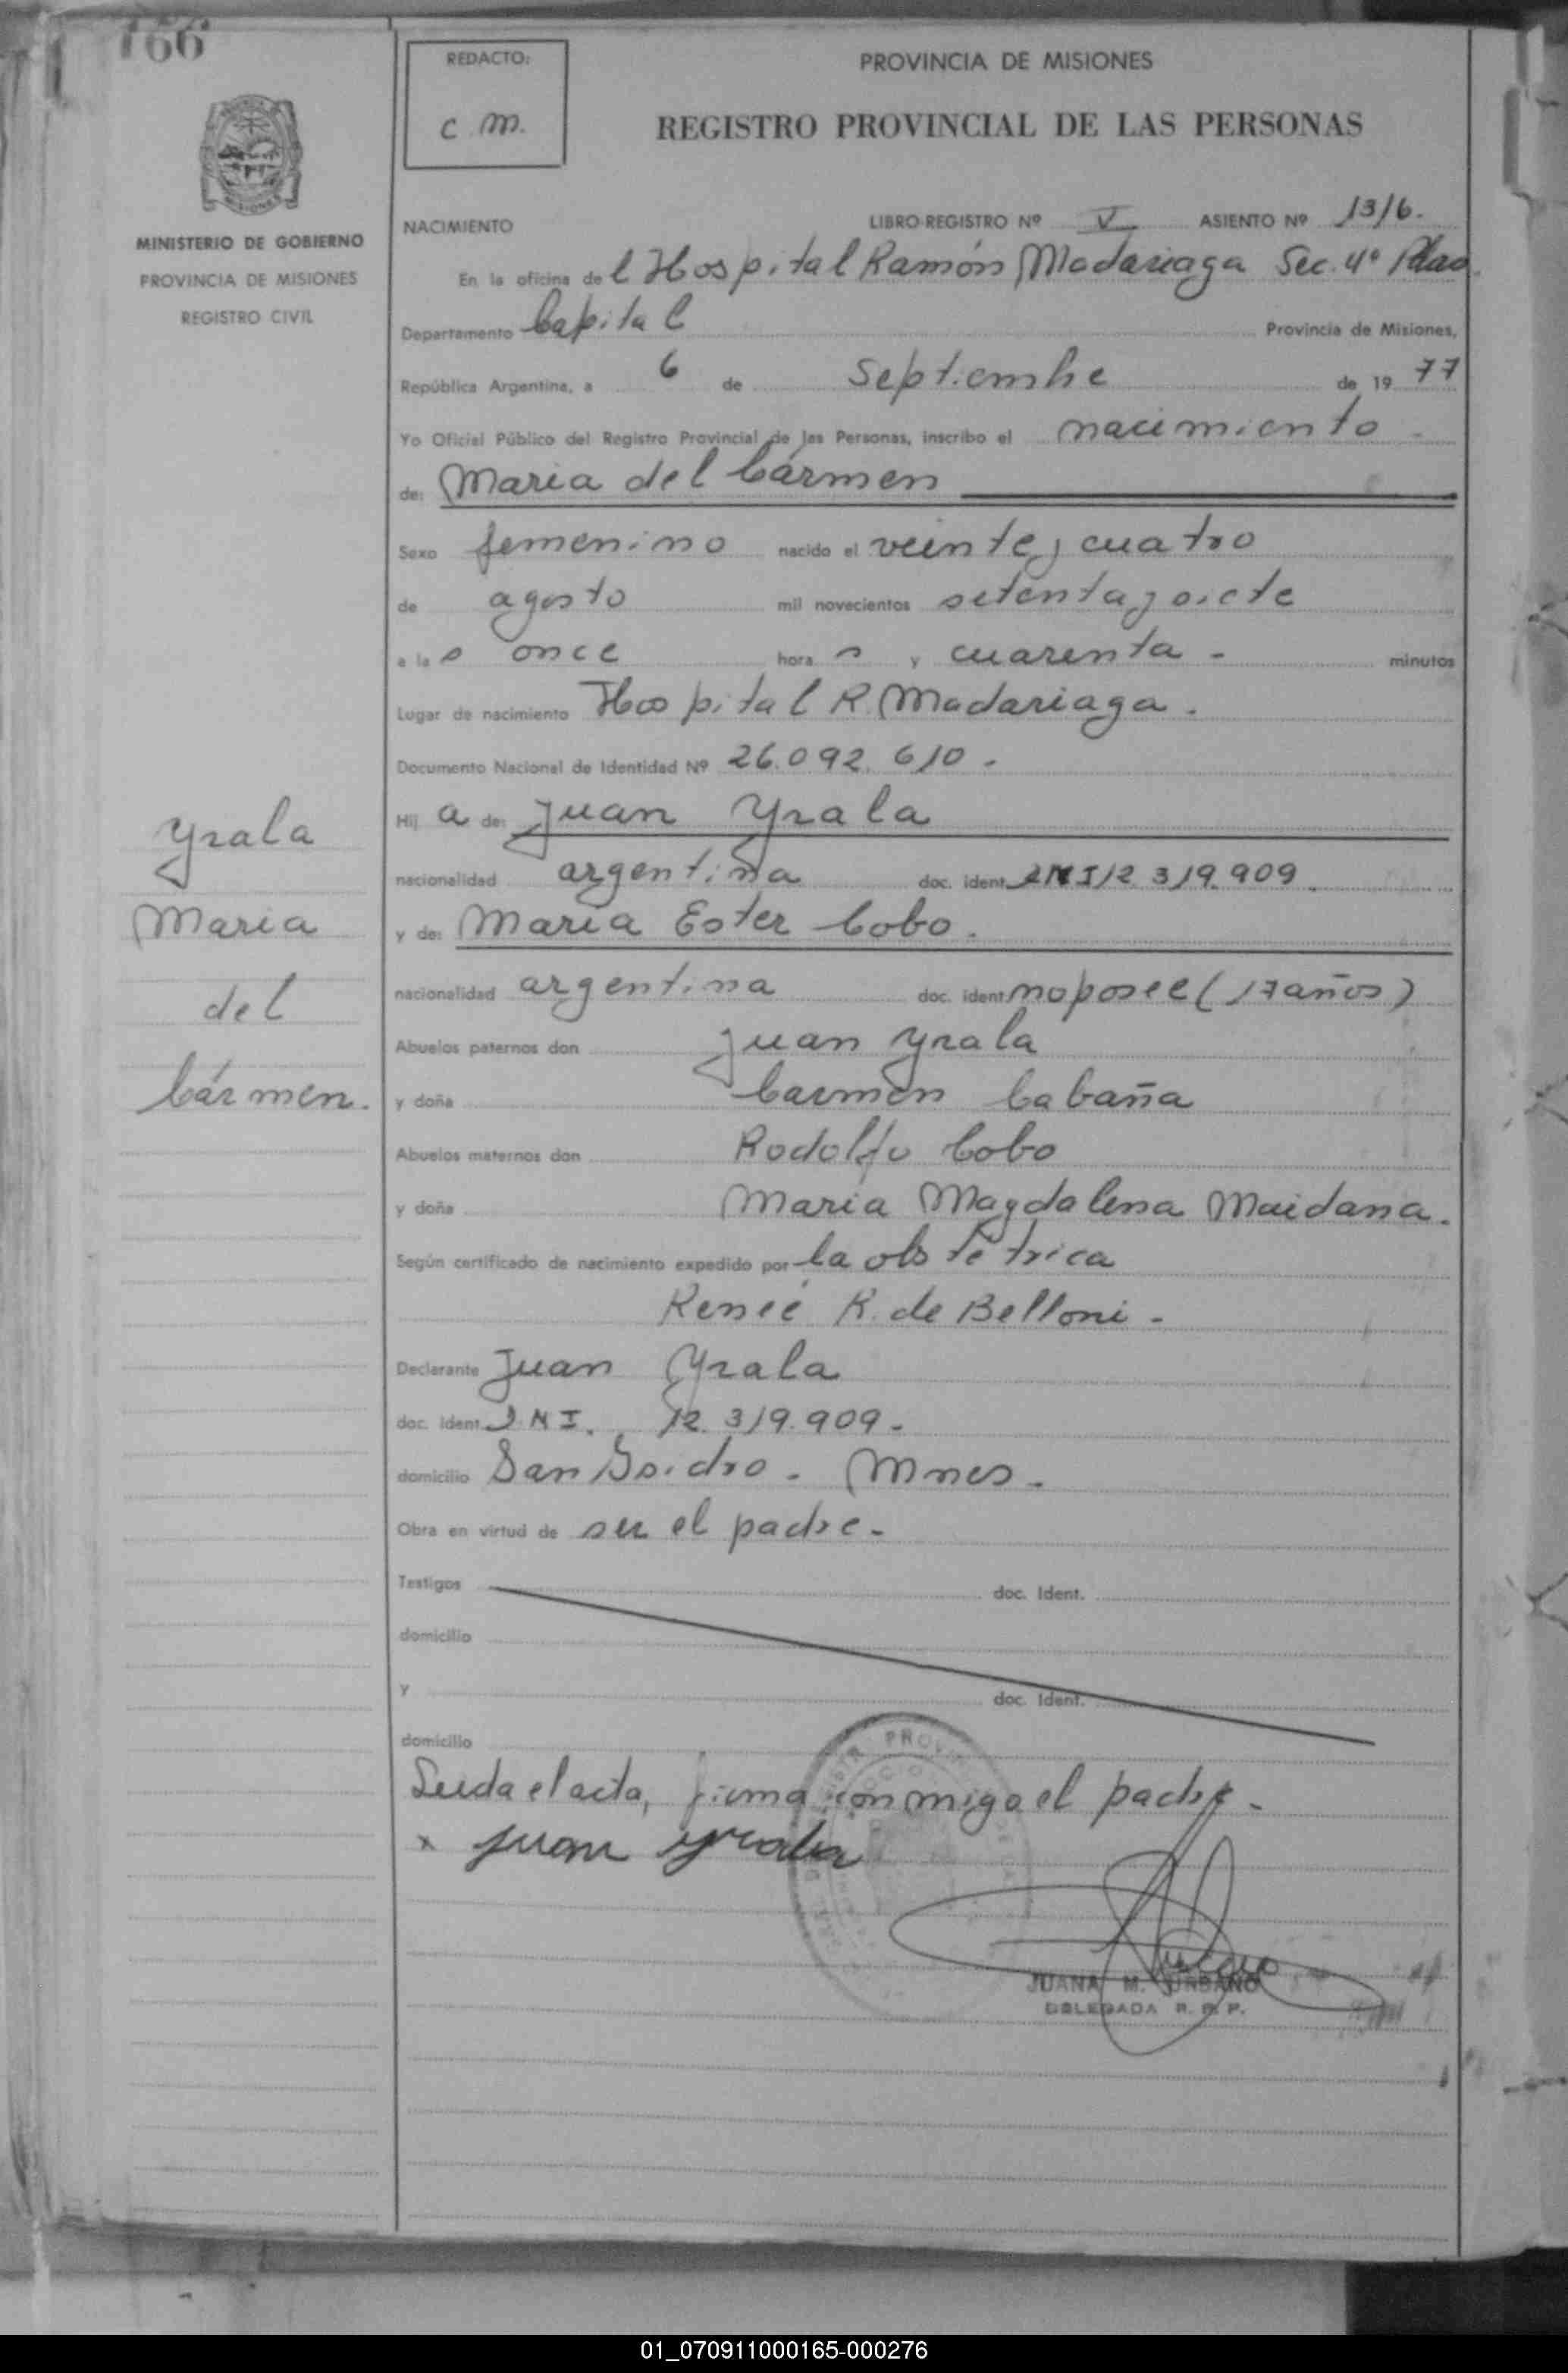 166
REDACTO:
C. M.
PROVINCIA DE MISIONES
REGISTRO PROVINCIAL DE LAS PERSONAS
MINISTERIO DE GOBIERNO
PROVINCIA DE MISIONES
REGISTRO CIVIL
NACIMIENTO LIBRO-REGISTRO Nº V ASIENTO Nº 1316.
En la oficina del Hospital Ramón Madariaga Sec. 4º
Departamento Capital Provincia de Misiones,
República Argentina, a 6 de Septiembre de 1977
Yo Oficial Público del Registro Provincial de las Personas, inscribo el nacimiento
de: Maria del Cármen
Sexo femenino nacido el veinte y cuatro
de agosto mil novecientos setenta y siete
a las once horas y cuarenta - minutos
Lugar de nacimiento Hospital R. Madariaga.
Documento Nacional de Identidad Nº 26.092.610.
Hija de: Juan Yrala
nacionalidad argentina doc. ident. DNI 12.319.909
y de: Maria Ester Cobo.
nacionalidad argentina doc. ident. no posee (17 años)
Abuelos paternos don Juan Yrala
y doña Carmen Cabaña
Abuelos maternos don Rodolfo Cobo
y doña Maria Magdalena Maidana.
Según certificado de nacimiento expedido por la obstétrica
Reneé R. de Belloni -
Declarante Juan Yrala
doc. ident. DNI. 12.319.909.
domicilio San Isidro - Mnes -
Obra en virtud de ser el padre -
Testigos doc. Ident.
domicilio
y doc. Ident.
domicilio
Leida el acta, firma conmigo el padre -
x Juan Yrala
JUANA M. URBANO
DELEGADA R. P. P.
Yrala
Maria
del
Cármen.
01_070911000165-000276